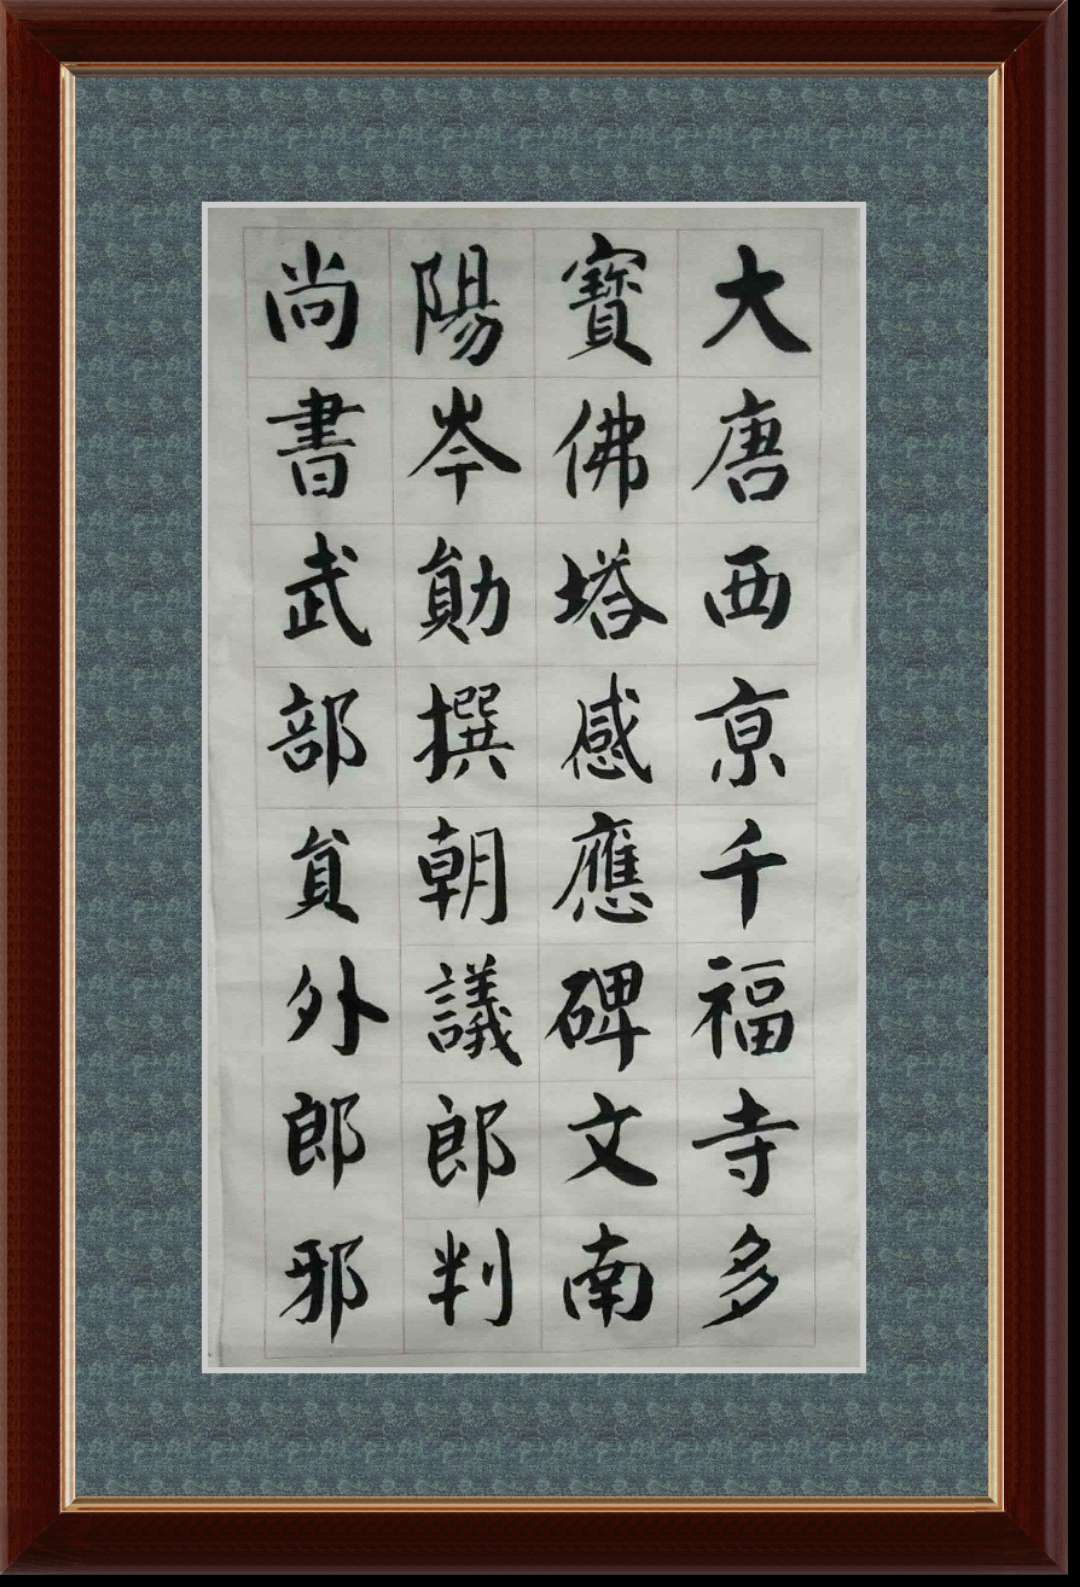 大唐西亰千福寺多
寶佛塔感應碑文南
陽岑勛撰朝議郎判
尚書武部貟外郎邪